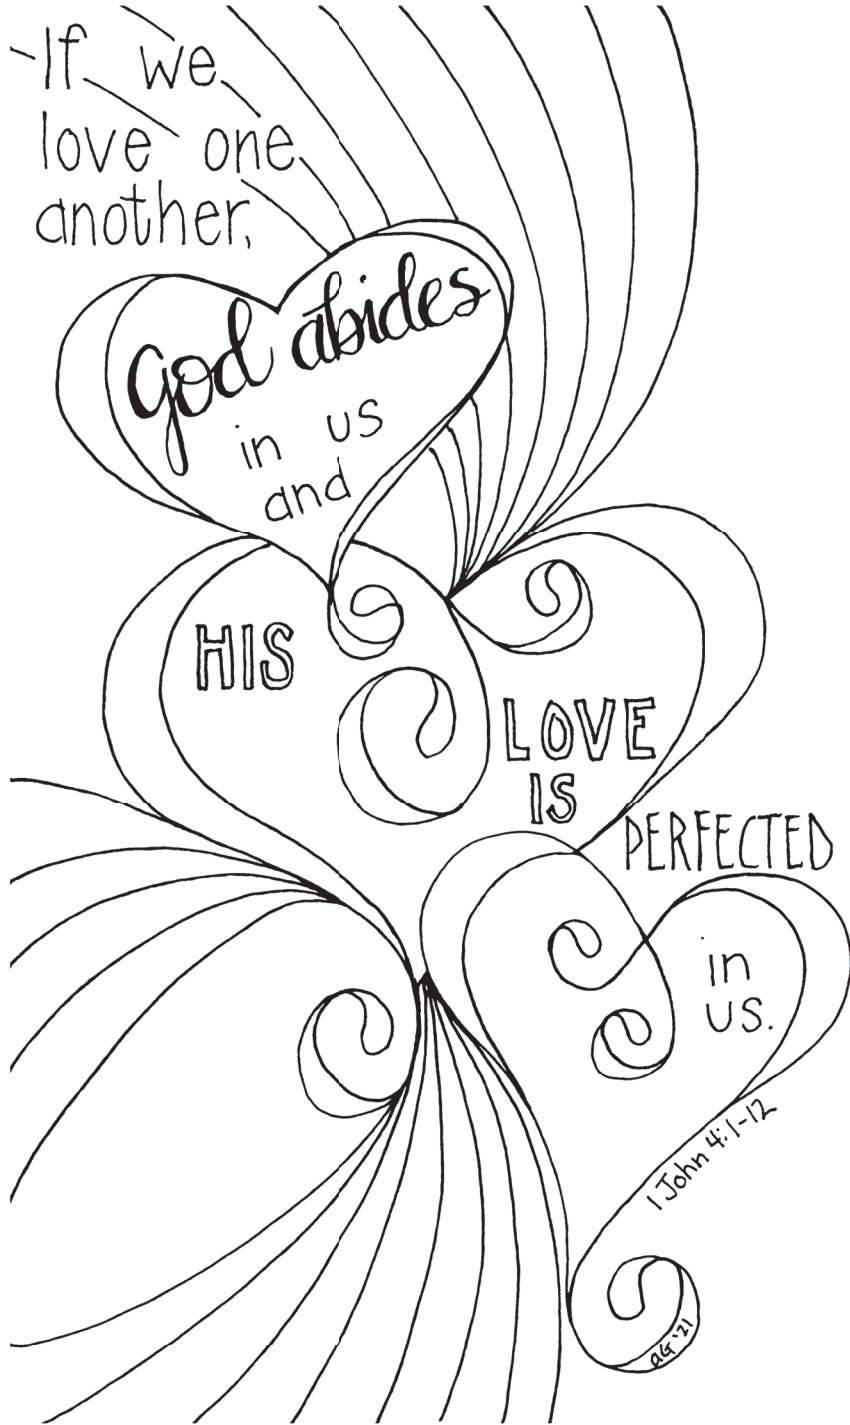 If we
love one
another,
God abides
in us
and
HIS
LOVE
IS
PERFECTED
in
us.
1 John 4:1-12
aG '21